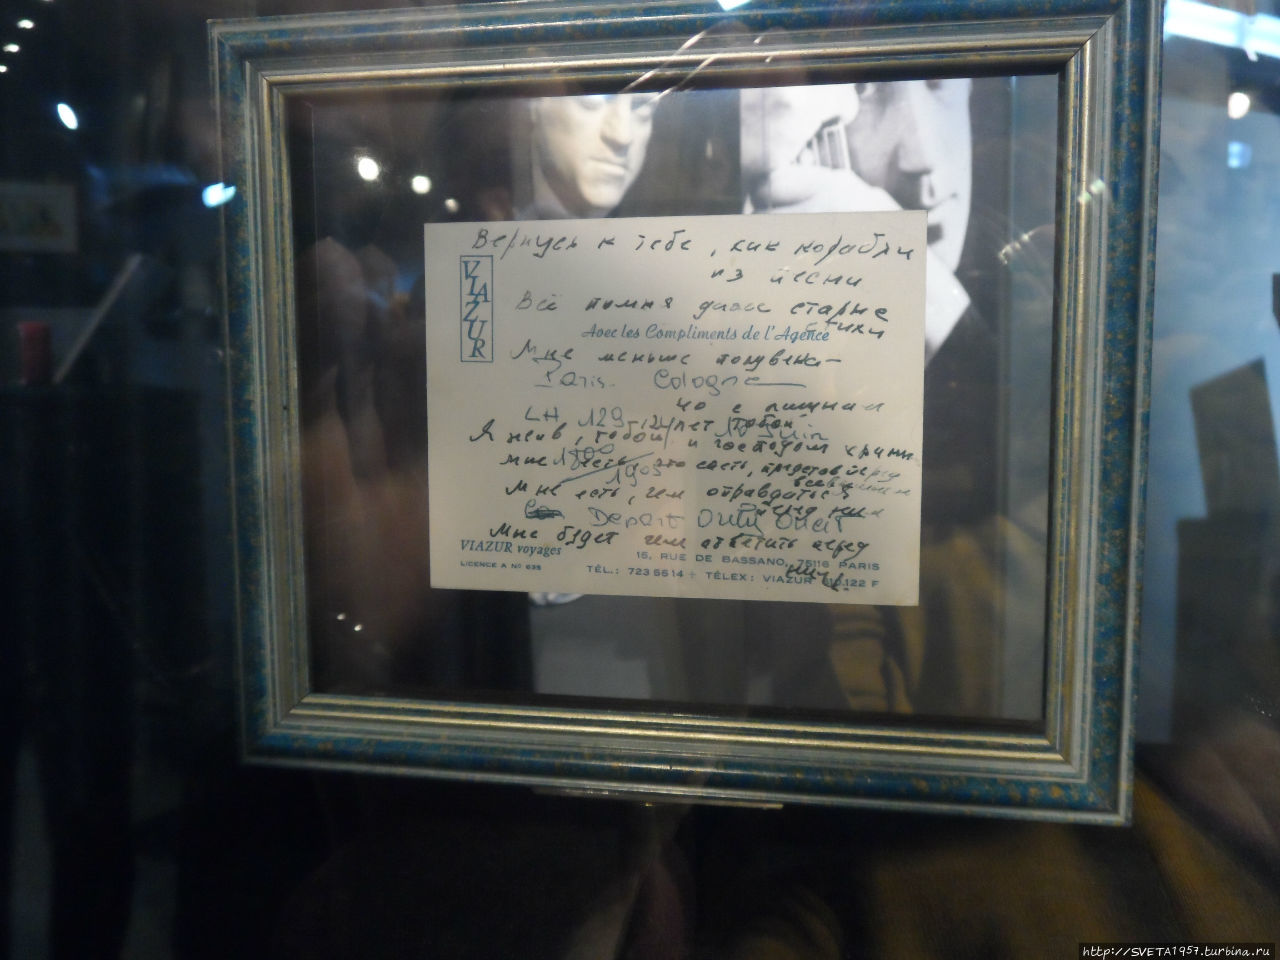 Вернусь к тебе, как корабли
из песни
VIAZUR
Всё помня даже старые
стихи
Avec les Compliments de l'Agence
Мне меньше полувека –
Paris. Cologne
но с лишним
LH 129 12 лет тобой
Я жив, тобой и господом храним
мне есть, что спеть, представ перед
1905
всевышним
Мне есть, чем оправдаться
перед ним
Depart Orly
Мне будет чем ответить перед
ним.
VIAZUR voyages
LICENCE A Nº 635
15, RUE DE BASSANO, 75116 PARIS
TÉL.: 723 5514 + TÉLEX: VIAZUR 122 F
http://SVETA1957.turbina.ru